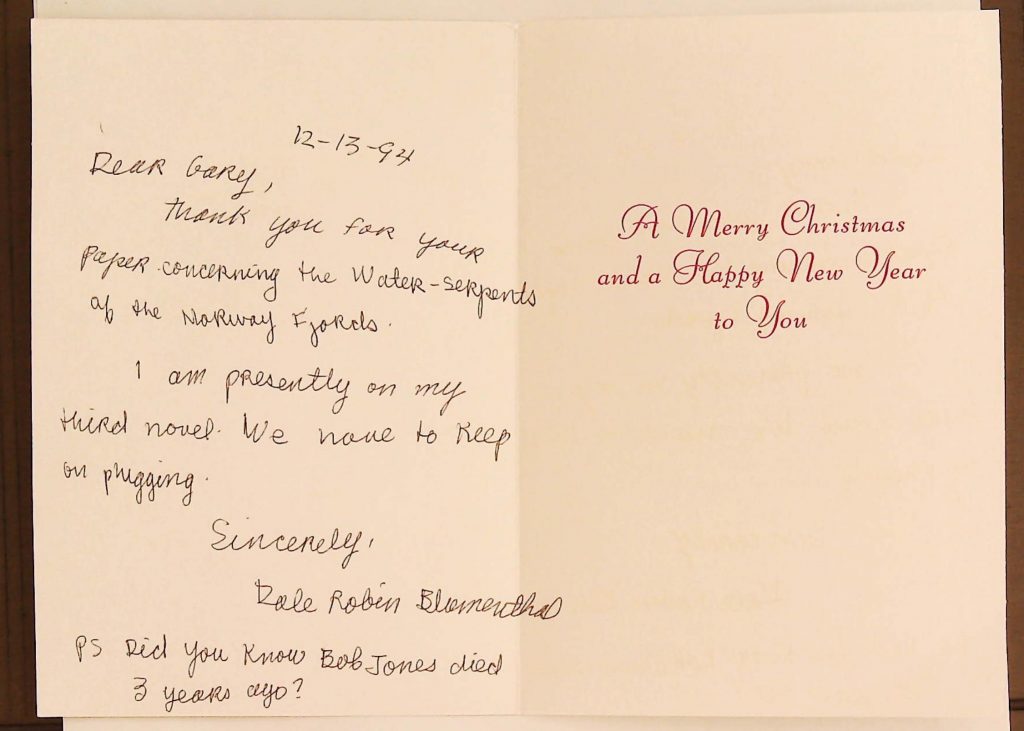 12-13-94
Dear Gary,
Thank you for your
paper concerning the Water-serpents
of the Norway Fjords.
I am presently on my
third novel. We have to keep
on plugging.
Sincerely,
Dale Robin Blumenthal
PS Did you know Bob Jones died
3 years ago?
A Merry Christmas
and a Happy New Year
to You